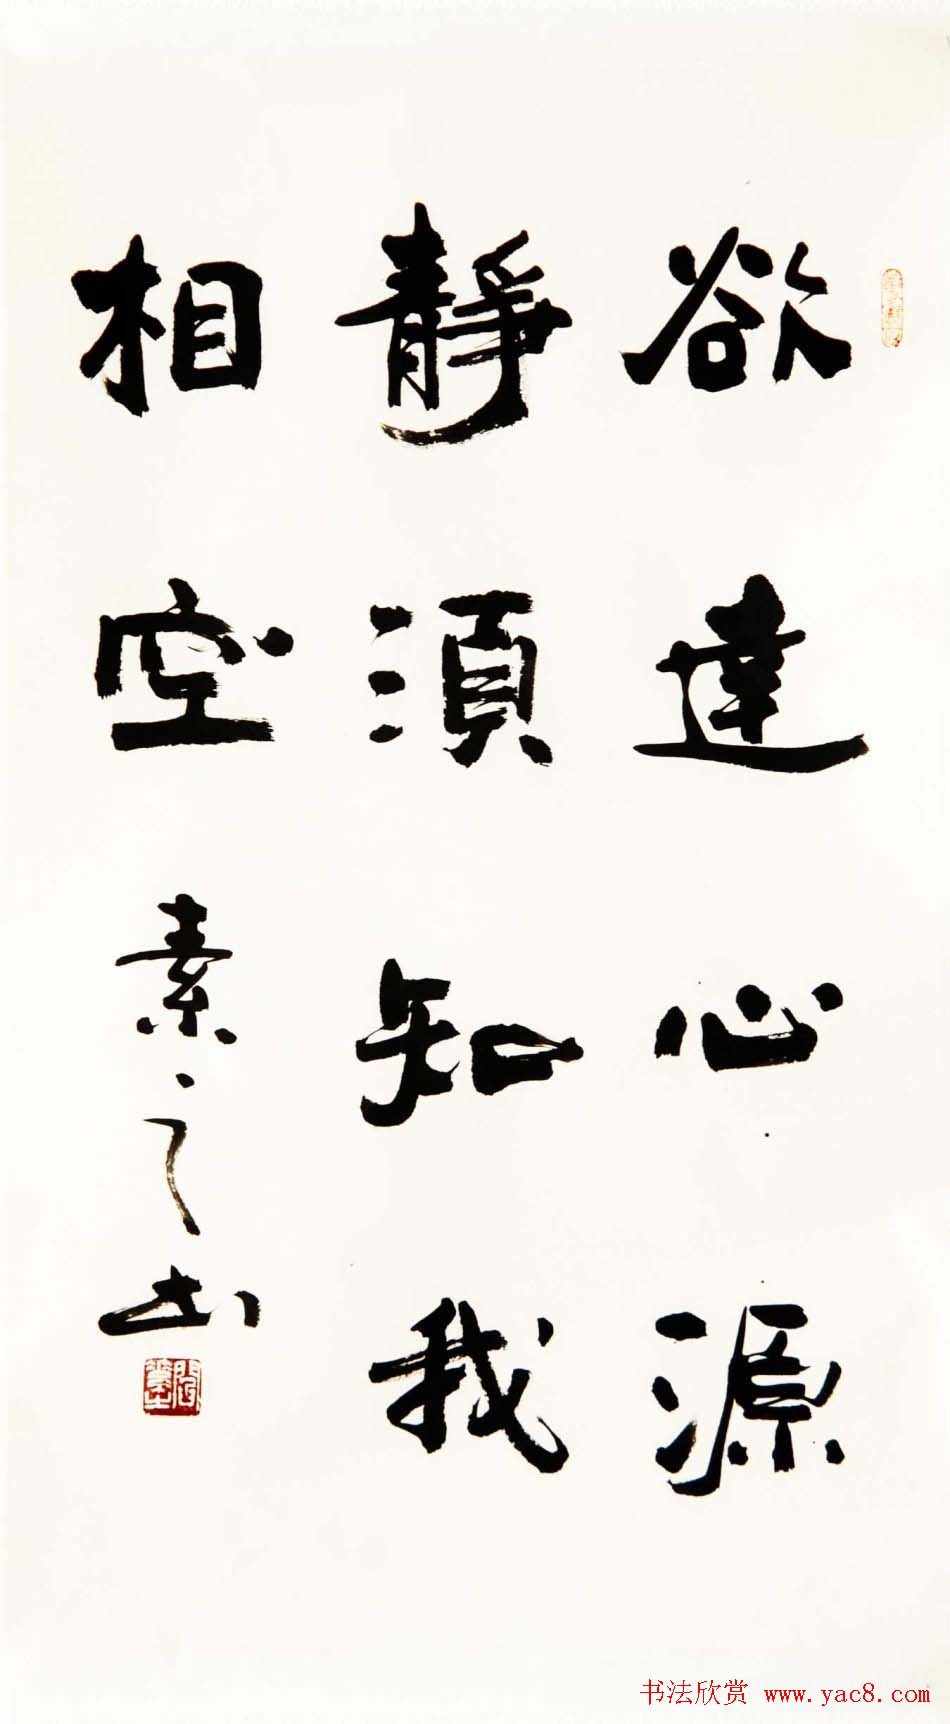 欲達心源
靜須知我
相空
素之书
书法欣赏 www.yac8.com